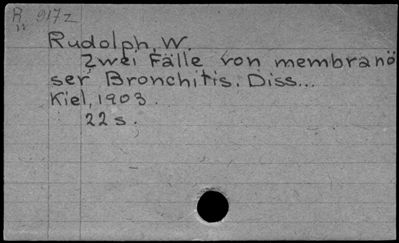 R 917z
Rudolph, W.
Zwei Fälle von membranö
ser Bronchitis. Diss...
Kiel, 1903.
22 s.